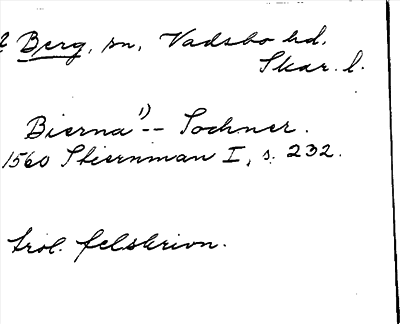 Berg, sn, Vadsbo hd.
Skar. l.
Bierna¹⁾-- Sochner.
1560 Stiernman I, s. 232.
trol. felskrivn.